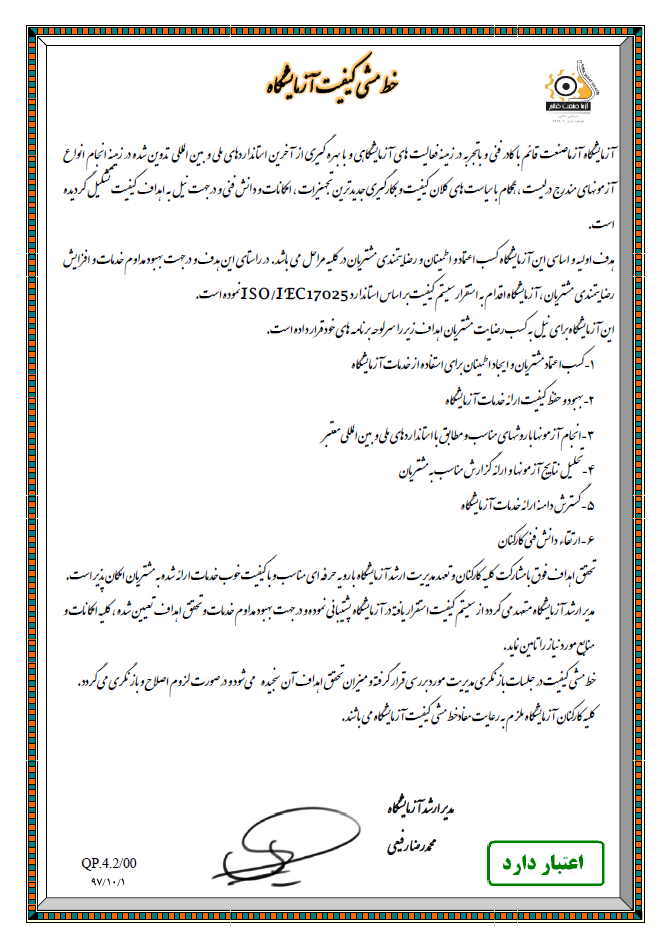 خط مشی کیفیت آزمایشگاه
آزما صنعت قائم
آزمایشگاه آزما صنعت قائم با کادر فنی و باتجربه در زمینه فعالیت های آزمایشگاهی و با بهره گیری از آخرین استانداردهای ملی و بین المللی تدوین شده در زمینه انجام انواع
آزمونهای مندرج در لیست ، همگام با سیاست های کلان کیفیت و بکارگیری جدیدترین تجهیزات ، امکانات و دانش فنی و در جهت نیل به اهداف کیفیت تشکیل گردیده
است.
هدف اولیه و اساسی این آزمایشگاه کسب اعتماد و اطمینان و رضایتمندی مشتریان در کلیه مراحل می باشد. در راستای این هدف و در جهت بهبود مداوم خدمات و افزایش
رضایتمندی مشتریان ، آزمایشگاه اقدام به استقرار سیستم کیفیت بر اساس استاندارد ISO/IEC17025 نموده است.
این آزمایشگاه برای نیل به کسب رضایت مشتریان اهداف زیر را سرلوحه برنامه های خود قرار داده است.
۱- کسب اعتماد مشتریان و ایجاد اطمینان برای استفاده از خدمات آزمایشگاه
۲- بهبود و حفظ کیفیت ارائه خدمات آزمایشگاه
۳- انجام آزمونها با روشهای مناسب و مطابق با استانداردهای ملی و بین المللی معتبر
۴- تحلیل نتایج آزمونها و ارائه گزارش مناسب به مشتریان
۵- گسترش دامنه ارائه خدمات آزمایشگاه
۶- ارتقاء دانش فنی کارکنان
تحقق اهداف فوق با مشارکت کلیه کارکنان و تعهد مدیریت ارشد آزمایشگاه با رویه حرفه ای مناسب و با کیفیت خوب خدمات ارائه شده به مشتریان امکان پذیر است.
مدیر ارشد آزمایشگاه متعهد می گردد از سیستم کیفیت استقرار یافته در آزمایشگاه پشتیبانی نموده و در جهت بهبود مداوم خدمات و تحقق اهداف تعیین شده ، کلیه امکانات و
منابع مورد نیاز را تامین نماید.
خط مشی کیفیت در جلسات بازنگری مدیریت مورد بررسی قرار گرفته و میزان تحقق اهداف آن سنجیده می شود و در صورت لزوم اصلاح و بازنگری می گردد.
کلیه کارکنان آزمایشگاه ملزم به رعایت مفاد خط مشی کیفیت آزمایشگاه می باشند.
مدیر ارشد آزمایشگاه
محمدرضا رفیعی
اعتبار دارد
QP.4.2/00
۹۷/۱۰/۱